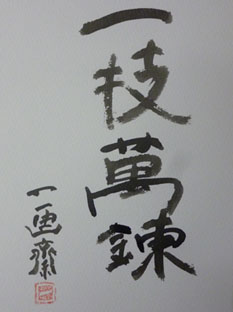 一技萬錬
一画齋